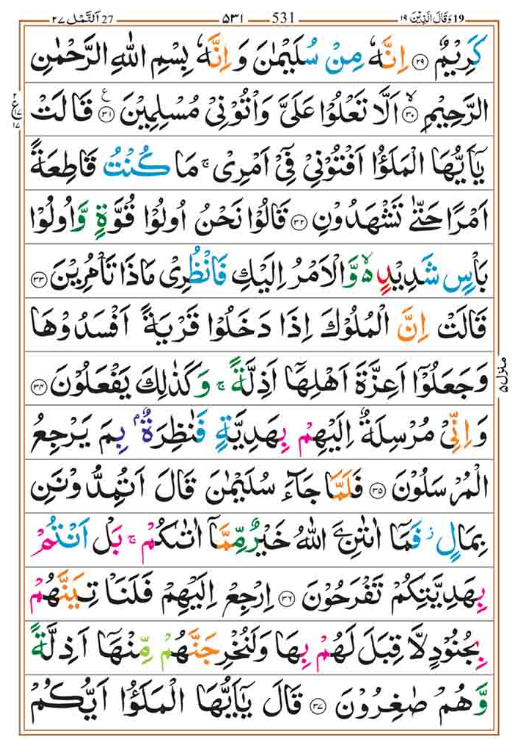 اَلنَّمْل 27 ٢٧ ٥٣١ 531 وَقَالَ الَّذِيْنَ ١٩ 19
كَرِيْمٌ ﴿٢٩﴾ اِنَّهٗ مِنْ سُلَيْمٰنَ وَ اِنَّهٗ بِسْمِ اللّٰهِ الرَّحْمٰنِ
الرَّحِيْمِ ۙ﴿٣٠﴾ اَلَّا تَعْلُوْا عَلَيَّ وَاْتُوْنِيْ مُسْلِمِيْنَ ﴿٣١﴾ ع قَالَتْ
يٰٓاَيُّهَا الْمَلَؤُا اَفْتُوْنِيْ فِيْٓ اَمْرِيْ ۚ مَا كُنْتُ قَاطِعَةً
اَمْرًا حَتّٰى تَشْهَدُوْنِ ﴿٣٢﴾ قَالُوْا نَحْنُ اُولُوْا قُوَّةٍ وَّاُولُوْا
بَاْسٍ شَدِيْدٍ ۙ۬ وَّالْاَمْرُ اِلَيْكِ فَانْظُرِيْ مَاذَا تَاْمُرِيْنَ ﴿٣٣﴾
قَالَتْ اِنَّ الْمُلُوْكَ اِذَا دَخَلُوْا قَرْيَةً اَفْسَدُوْهَا
وَجَعَلُوْٓا اَعِزَّةَ اَهْلِهَآ اَذِلَّةً ۚ وَكَذٰلِكَ يَفْعَلُوْنَ ﴿٣٤﴾
وَ اِنِّيْ مُرْسِلَةٌ اِلَيْهِمْ بِهَدِيَّةٍ فَنٰظِرَةٌۢ بِمَ يَرْجِعُ
الْمُرْسَلُوْنَ ﴿٣٥﴾ فَلَمَّا جَآءَ سُلَيْمٰنَ قَالَ اَتُمِدُّوْنَنِ
بِمَالٍ ؗ فَمَآ اٰتٰىنِۦَ اللّٰهُ خَيْرٌ مِّمَّآ اٰتٰىكُمْ ۚ بَلْ اَنْتُمْ
بِهَدِيَّتِكُمْ تَفْرَحُوْنَ ﴿٣٦﴾ اِرْجِعْ اِلَيْهِمْ فَلَنَاْتِيَنَّهُمْ
بِجُنُوْدٍ لَّا قِبَلَ لَهُمْ بِهَا وَلَنُخْرِجَنَّهُمْ مِّنْهَآ اَذِلَّةً
وَّهُمْ صٰغِرُوْنَ ﴿٣٧﴾ قَالَ يٰٓاَيُّهَا الْمَلَؤُا اَيُّكُمْ
منزل ٥